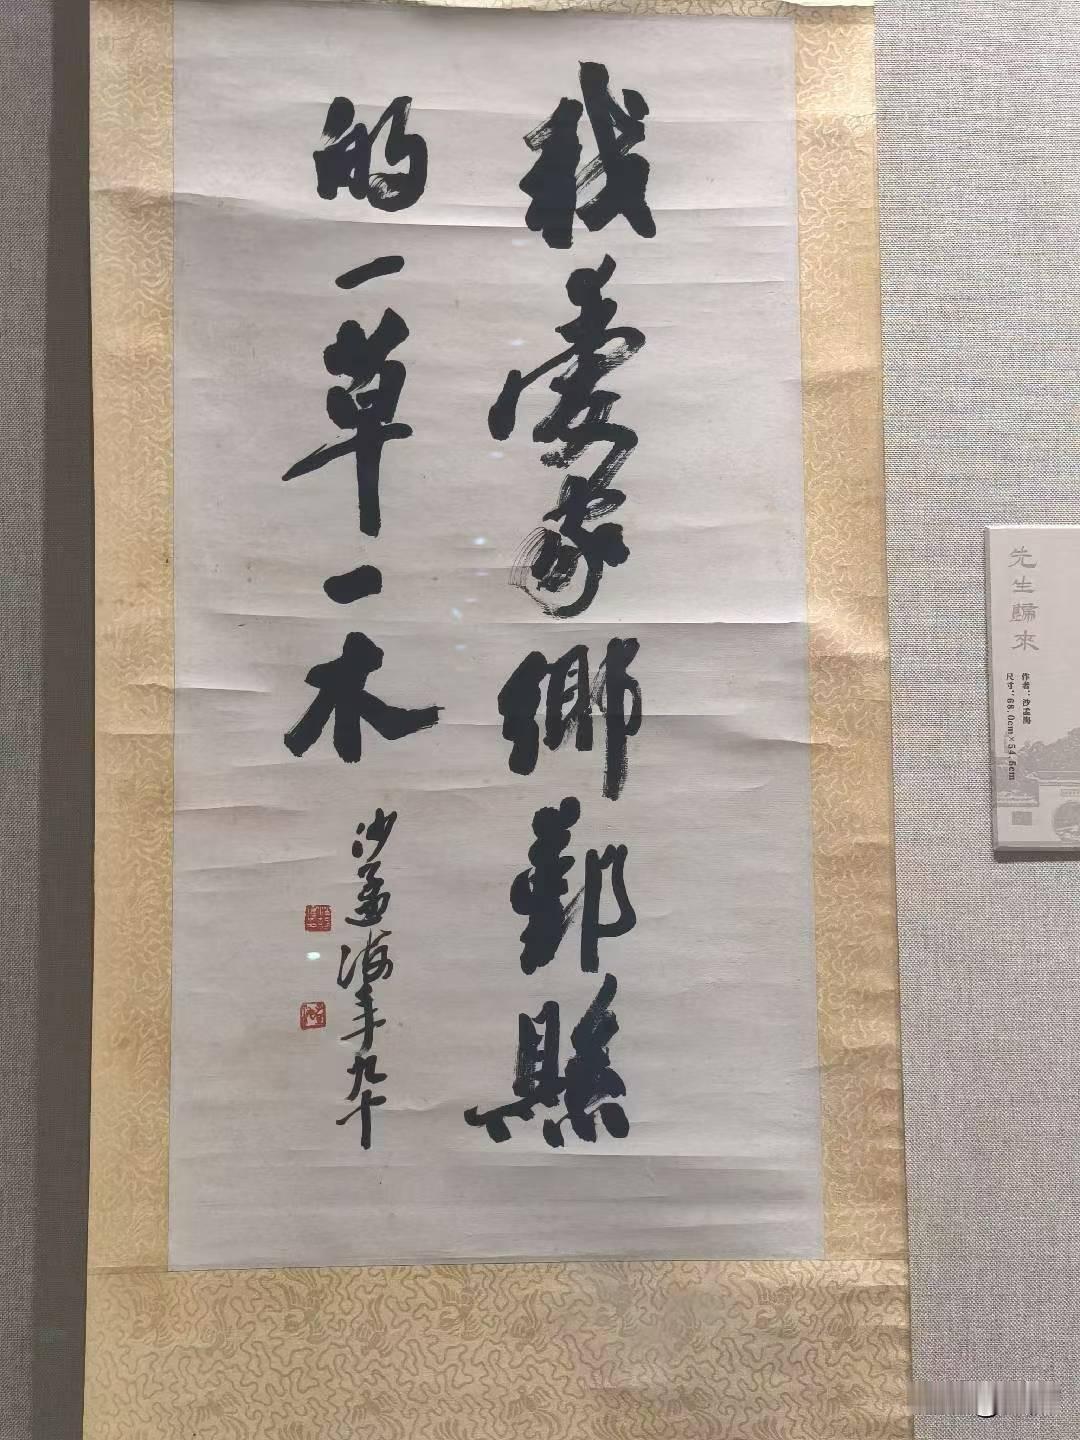 我愛家鄉鄞縣
的一草一木
沙孟海年九十
先生歸來
作者：沙孟海
尺寸：68.0cm×54.5cm